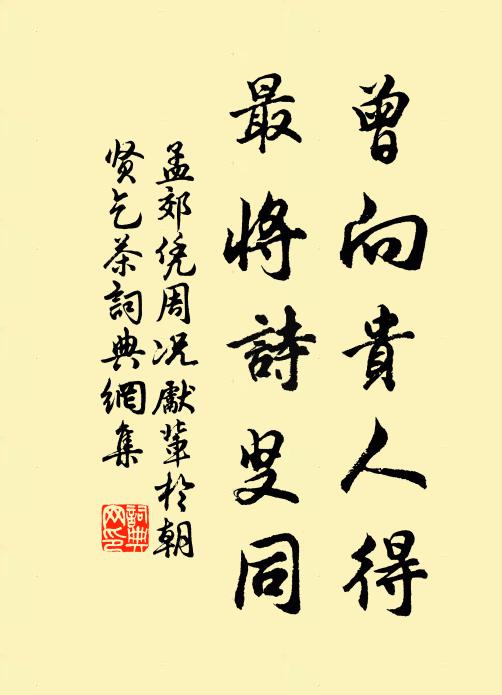 曾向貴人得
最將詩叟同
孟郊凭周况獻輩於朝
贤乞茶詞典網集
詞典
网印